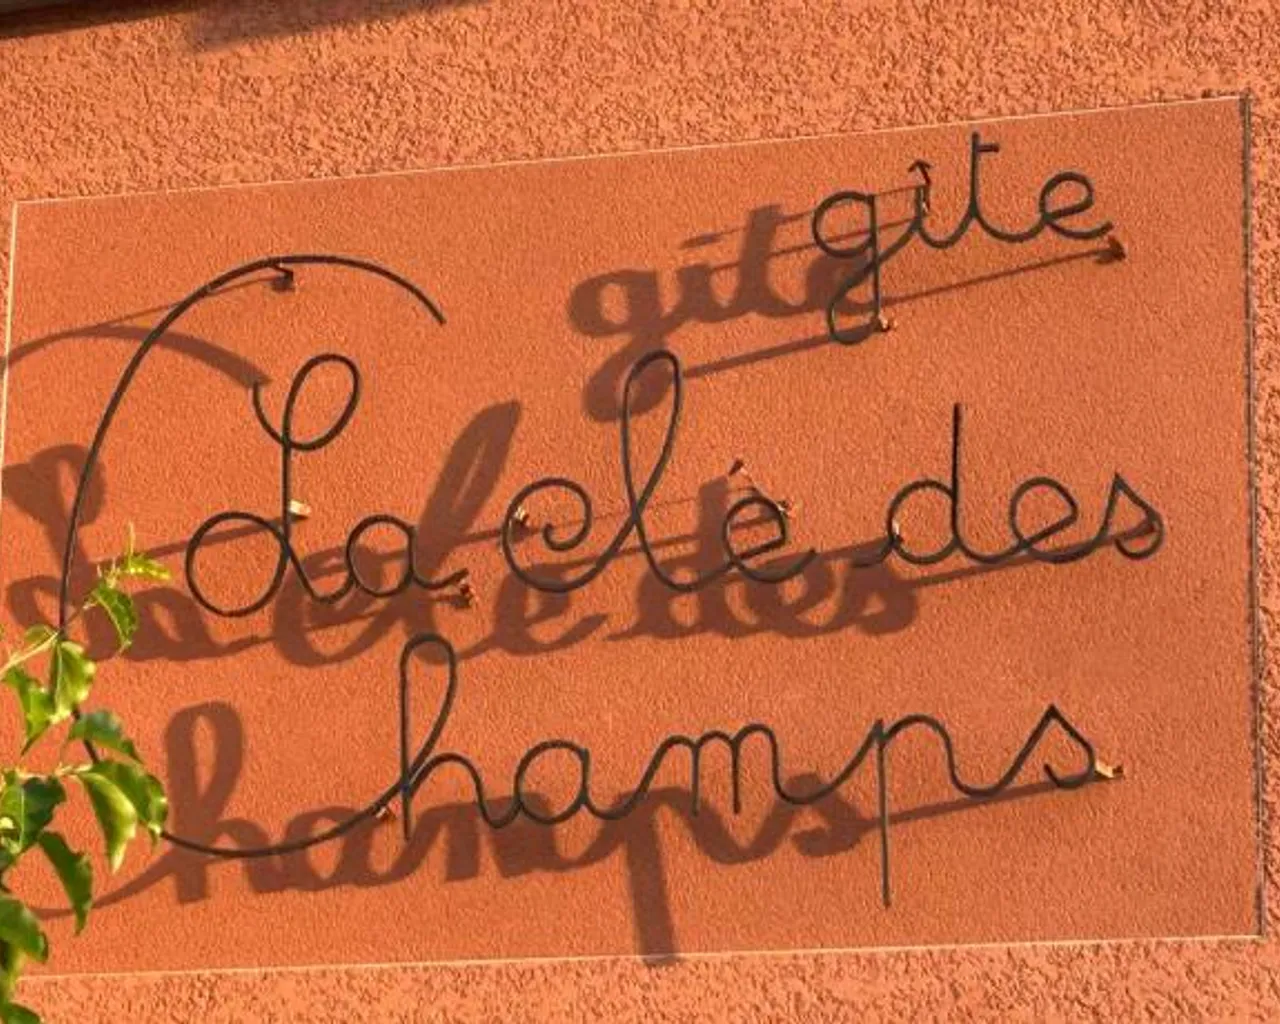 gîte
La clé des
champs